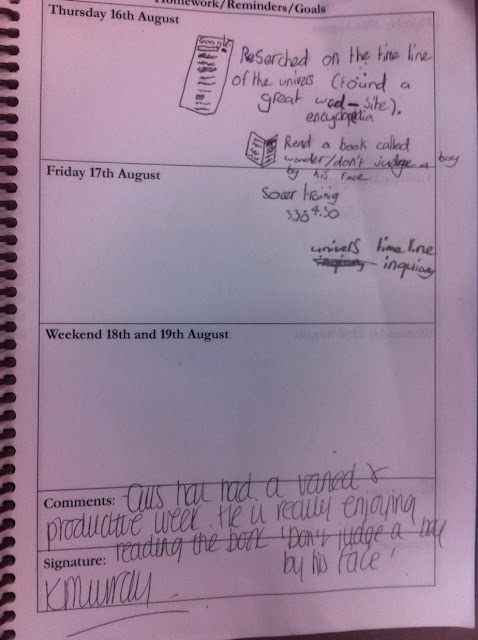 Homework/Reminders/Goals
Thursday 16th August
Google
Reserched on the time line
of the univers (tound a
great wed-site).
encyclopedia
Read a book called
wonder/don't judge a boy
by his face
Friday 17th August
Socer treinig
3.30 4.30
univers time line
inquiary
Weekend 18th and 19th August
Comments: Gus has had a varied &
productive week. He is really enjoying
reading the book 'Don't judge a boy
by his face'.
Signature:
K Murray